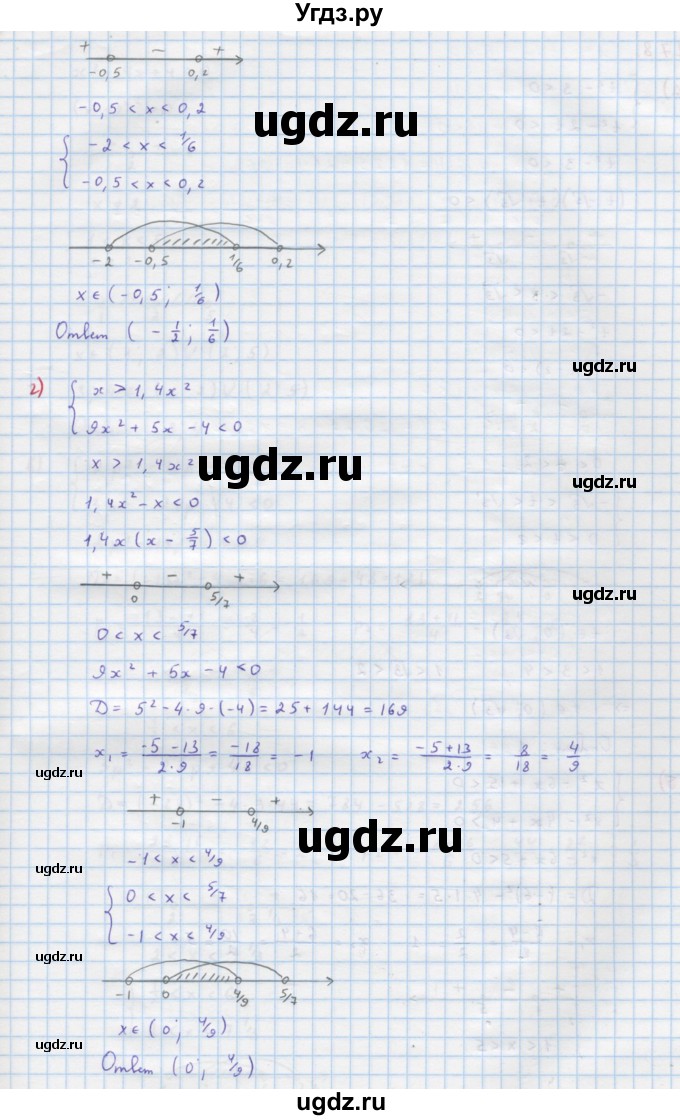 Угдз.ру
+ − +
-0,5 0,2
-0,5 < x < 0,2
ugdz.ru
-2 < x < 1/6
-0,5 < x < 0,2
-2 -0,5 1/6 0,2
x ∈ (-0,5; 1/6)
Ответ (-1/2; 1/6)
ugdz.ru
2) x > 1,4x²
9x² + 5x - 4 < 0
x > 1,4x²
ugdz.ru
ugdz.ru
ugdz.ru
1,4x² - x < 0
1,4x(x - 5/7) < 0
+ − +
0 5/7
ugdz.ru
0 < x < 5/7
9x² + 5x - 4 < 0
D = 5² - 4·9·(-4) = 25 + 144 = 169
x₁ = (-5-13)/(2·9) = -18/18 = -1 x₂ = (-5+13)/(2·9) = 8/18 = 4/9
ugdz.ru
+ − +
-1 4/9
ugdz.ru
-1 < x < 4/9
ugdz.ru
0 < x < 5/7
-1 < x < 4/9
ugdz.ru
-1 0 4/9 5/7
x ∈ (0; 4/9)
ugdz.ru
Ответ (0; 4/9)
ugdz.ru